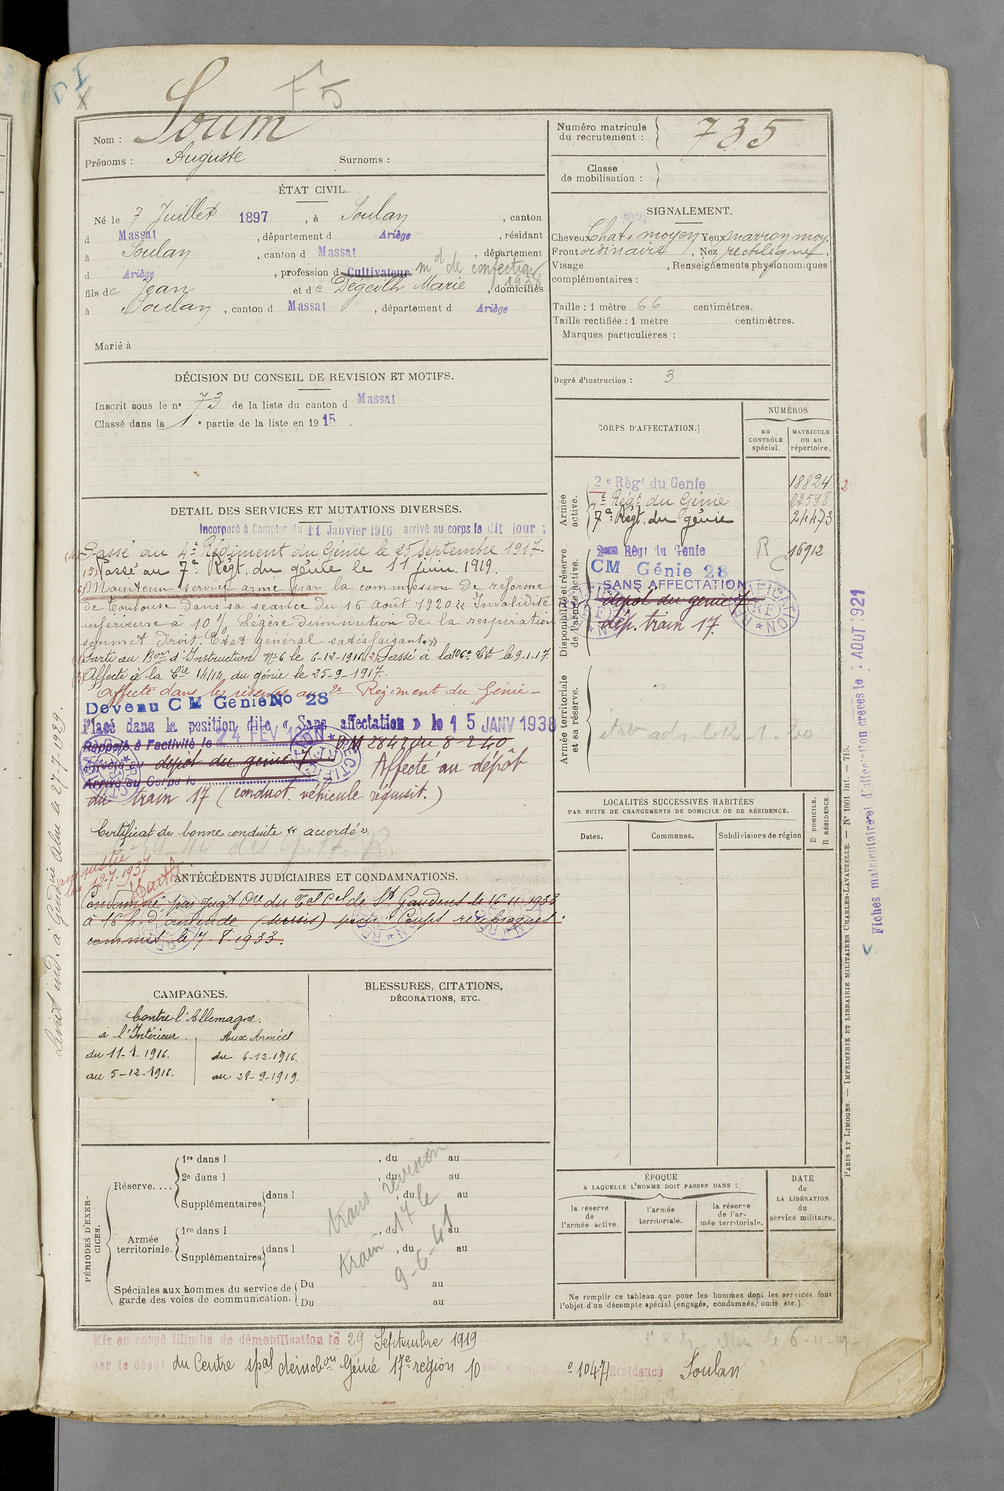 F5
Nom : Soum
Prénoms : Auguste Surnoms :
ÉTAT CIVIL.
Né le 7 Juillet 1897, à Soulan, canton
d Massat, département d Ariège, résidant
à Soulan, canton d Massat, département
d Ariège, profession d Cultivateur md de confection 1938
fils de Jean et de Degeilh Marie, domiciliés
à Soulan, canton d Massat, département d Ariège
Marié à
DÉCISION DU CONSEIL DE REVISION ET MOTIFS.
Inscrit sous le n° 73 de la liste du canton d Massat
Classé dans la 1e partie de la liste en 1915.
DÉTAIL DES SERVICES ET MUTATIONS DIVERSES.
Incorporé à Compter du 11 Janvier 1916 arrivé au corps le dit jour ;
Passé au 4e Régiment du Génie le 25 Septembre 1917.
Passé au 7e Régt. du génie le 11 juin 1919.
Maintenu service armé par la commission de réforme
de Toulouse dans sa séance du 16 Août 1920 "Invalidité
inférieure à 10% Légère diminution de la respiration
sommet droit. Etat général satisfaisant"
Parti au Bon d'Instruction No 6 le 6-12-1916 (2) Passé à la 106e Cie le 9-1-17
Affecté à la Cie 14/14 du génie le 25-9-1917.
Affecté dans les réserves au 2e Régiment du Génie
Devenu CM Génie No 28
Placé dans la position dite « Sans affectation » le 15 JANV 1938
Rappelé à l'activité le 24 FEV DM 2847 du 8-2-40
dépôt du génie 7 Affecté au dépôt
Arrivé au Corps le
du train 17 (conduct. véhicule réquisit.)
Certificat de bonne conduite "accordé".
12-7-1937
ANTÉCÉDENTS JUDICIAIRES ET CONDAMNATIONS.
Condamné par Jugt du Tal Cel de St Gaudens le 16-11-1933
à 16 f. d'amende (sursis) pour : Coups réciproques
commis le 7-8-1933.
CAMPAGNES.
Contre l'Allemagne.
à l'Intérieur. Aux Armées
du 11-1-1916. du 6-12-1916.
au 5-12-1916. au 28-9-1919.
BLESSURES, CITATIONS,
DÉCORATIONS, ETC.
PÉRIODES D'EXERCICES.
Réserve....
1re dans l , du au
2e dans l , du au
Supplémentaires dans l , du au
Armée territoriale.
1re dans l , du au
Supplémentaires dans l , du au
Spéciales aux hommes du service de garde des voies de communication.
Du au
Du au
train 17 le
9-6-41
Mis en congé illimité de démobilisation le 29 Septembre 1919
par le dépôt du Centre spal démobon Génie 17e région 10
Résidence Soulan
Numéro matricule du recrutement : 735
Classe de mobilisation :
SIGNALEMENT.
Cheveux Chat. moyen Yeux marron moy.
Front ordinaire, Nez rectiligne
Visage , Renseignements physionomiques
complémentaires :
Taille : 1 mètre 66 centimètres.
Taille rectifiée : 1 mètre centimètres.
Marques particulières :
Degré d'instruction : 3
CORPS D'AFFECTATION.
NUMÉROS
au CONTRÔLE spécial.
MATRICULE ou au répertoire.
Armée active.
2e Régt du Génie 18824
4e Régt du Génie 22598
7e Régt. du génie 24473
Disponibilité et réserve de l'armée active.
2e Régt du Genie R 16912
CM Génie 28
SANS AFFECTATION
dépôt du génie 7
dép. train 17.
Armée territoriale et sa réserve.
LOCALITÉS SUCCESSIVES HABITÉES
PAR SUITE DE CHANGEMENTS DE DOMICILE OU DE RÉSIDENCE.
Dates. Communes. Subdivisions de région
D DOMICILE.
R RÉSIDENCE.
ÉPOQUE
A LAQUELLE L'HOMME DOIT PASSER DANS :
la réserve de l'armée active.
l'armée territoriale.
la réserve de l'armée territoriale.
DATE de LA LIBÉRATION du service militaire.
Ne remplir ce tableau que pour les hommes dont les services font
l'objet d'un décompte spécial (engagés, condamnés, omis, etc.).
PARIS ET LIMOGES. — IMPRIMERIE ET LIBRAIRIE MILITAIRES CHARLES-LAVAUZELLE. — N° 1001 Int. — 715.